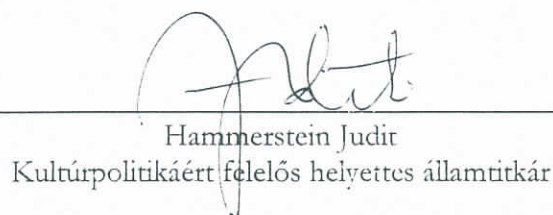 Hammerstein Judit
Kultúrpolitikáért felelős helyettes államtitkár